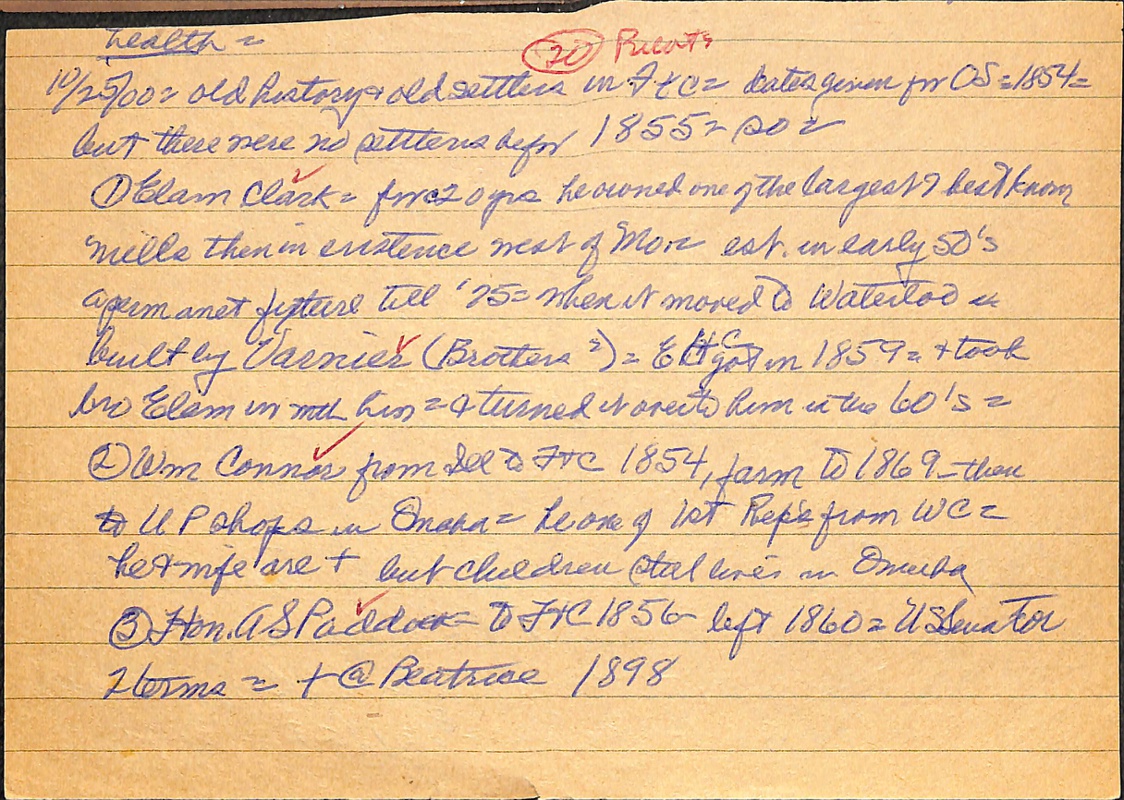 health =
20
10/25/00= old history & old settlers in Ft C = dates given for OS = 1854=
but there were no settlers befor 1855 = so =
① Elam Clark = for 20 yrs he owned one of the largest & best known
mills then in existence west of Mo r = est. in early 50's
a permanet fixture till '75 = when it moved to Waterloo =
built by Varnier (Brothers ?) = E H C got in 1859 = + took
bro Elam in with him = & turned it over to him in the 60's =
② Wm Connor from Ill to Ft C 1854, farm to 1869 - then
to U P shops in Omaha = he one of 1st Reps from WC =
he & wife are + but children stil lives in Omaha
③ Hon. A S Paddock = to Ft C 1856 - left 1860 = US Senator
2 terms = + @ Beatrice 1898